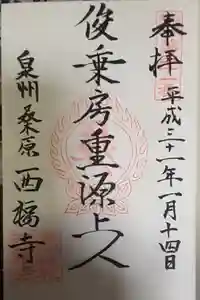 奉拝
平成三十一年一月十四日
俊乗房重源上人
泉州桑原西福寺